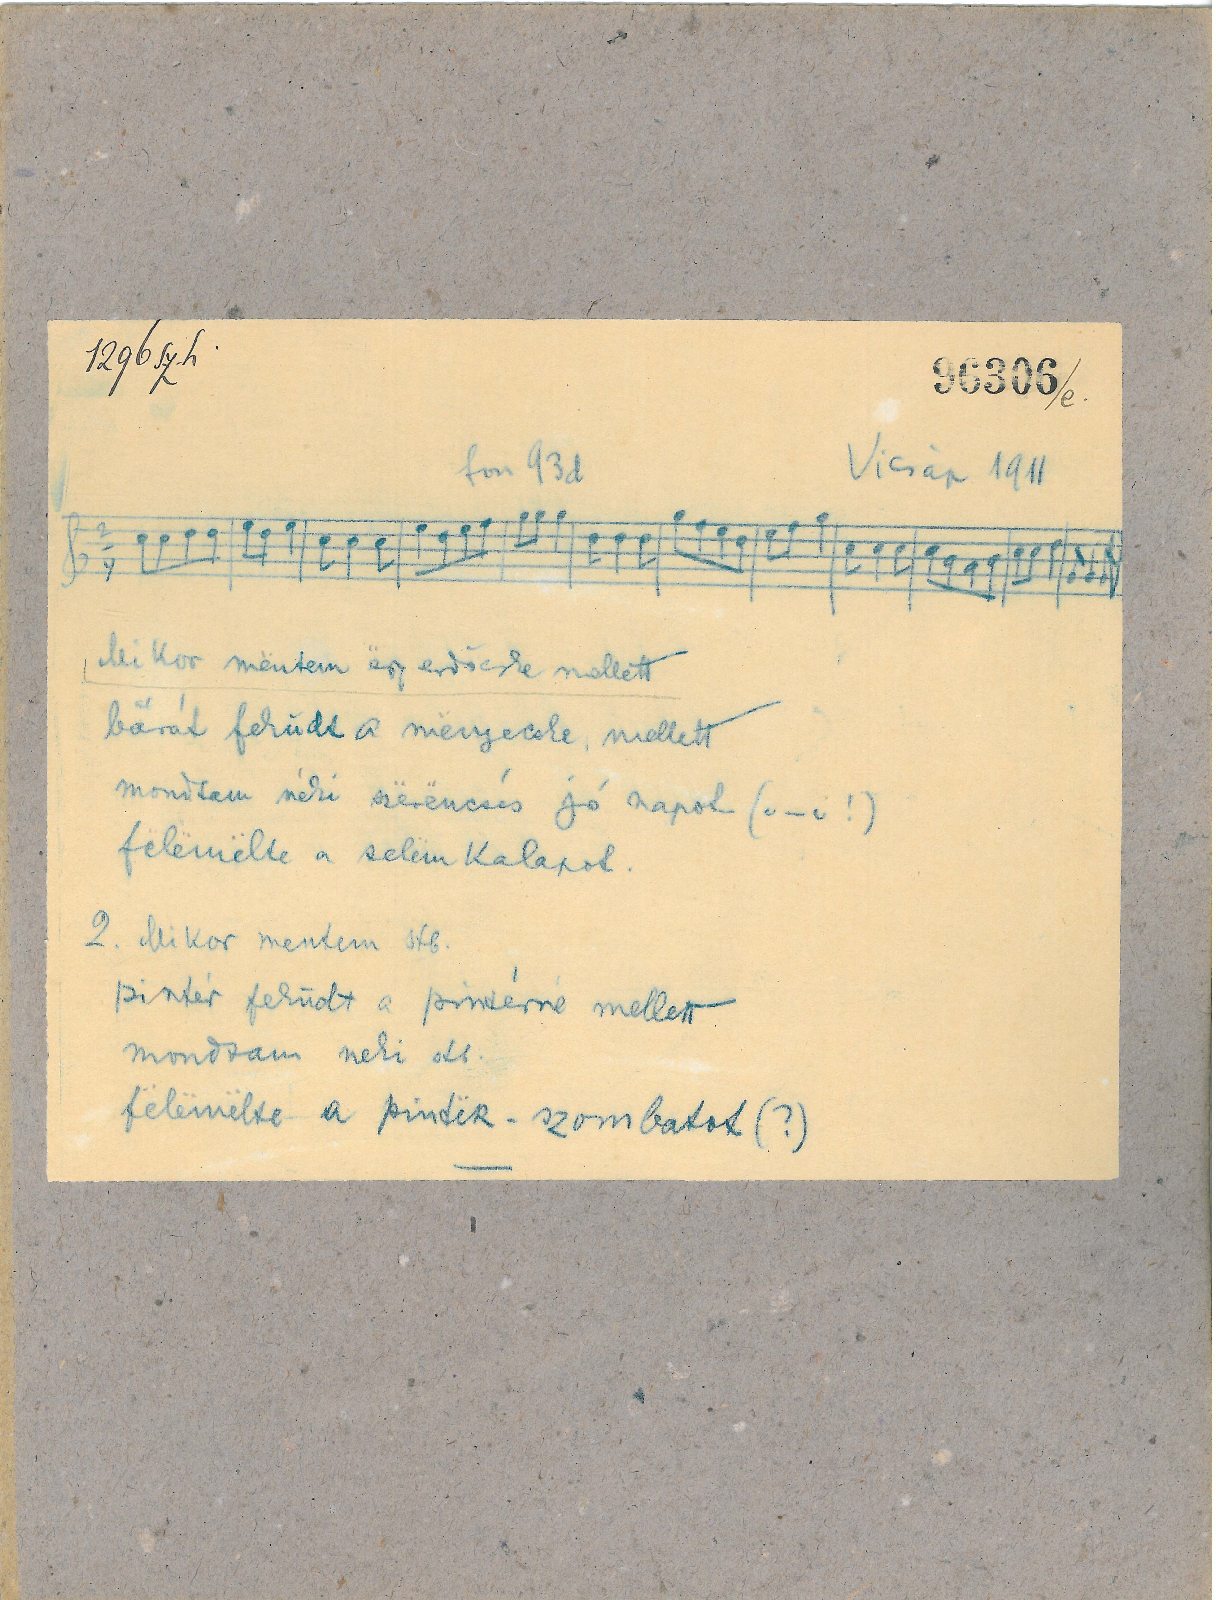 1296 sz. h.
96306/e.
fon 93d
Vicsáp 1911
2 4
Mikor mëntem ëgy erdőcske mellett
bārát feküdt a mënyecske, mellett
mondtam néki szërëncsés jó napot (
fëlëmëlte a selëm kalapot.
2. Mikor mentem stb.
pintér feküdt a pintérné mellett
mondtam neki stb.
fëlëmëlte a pintëk - szombatot (?)